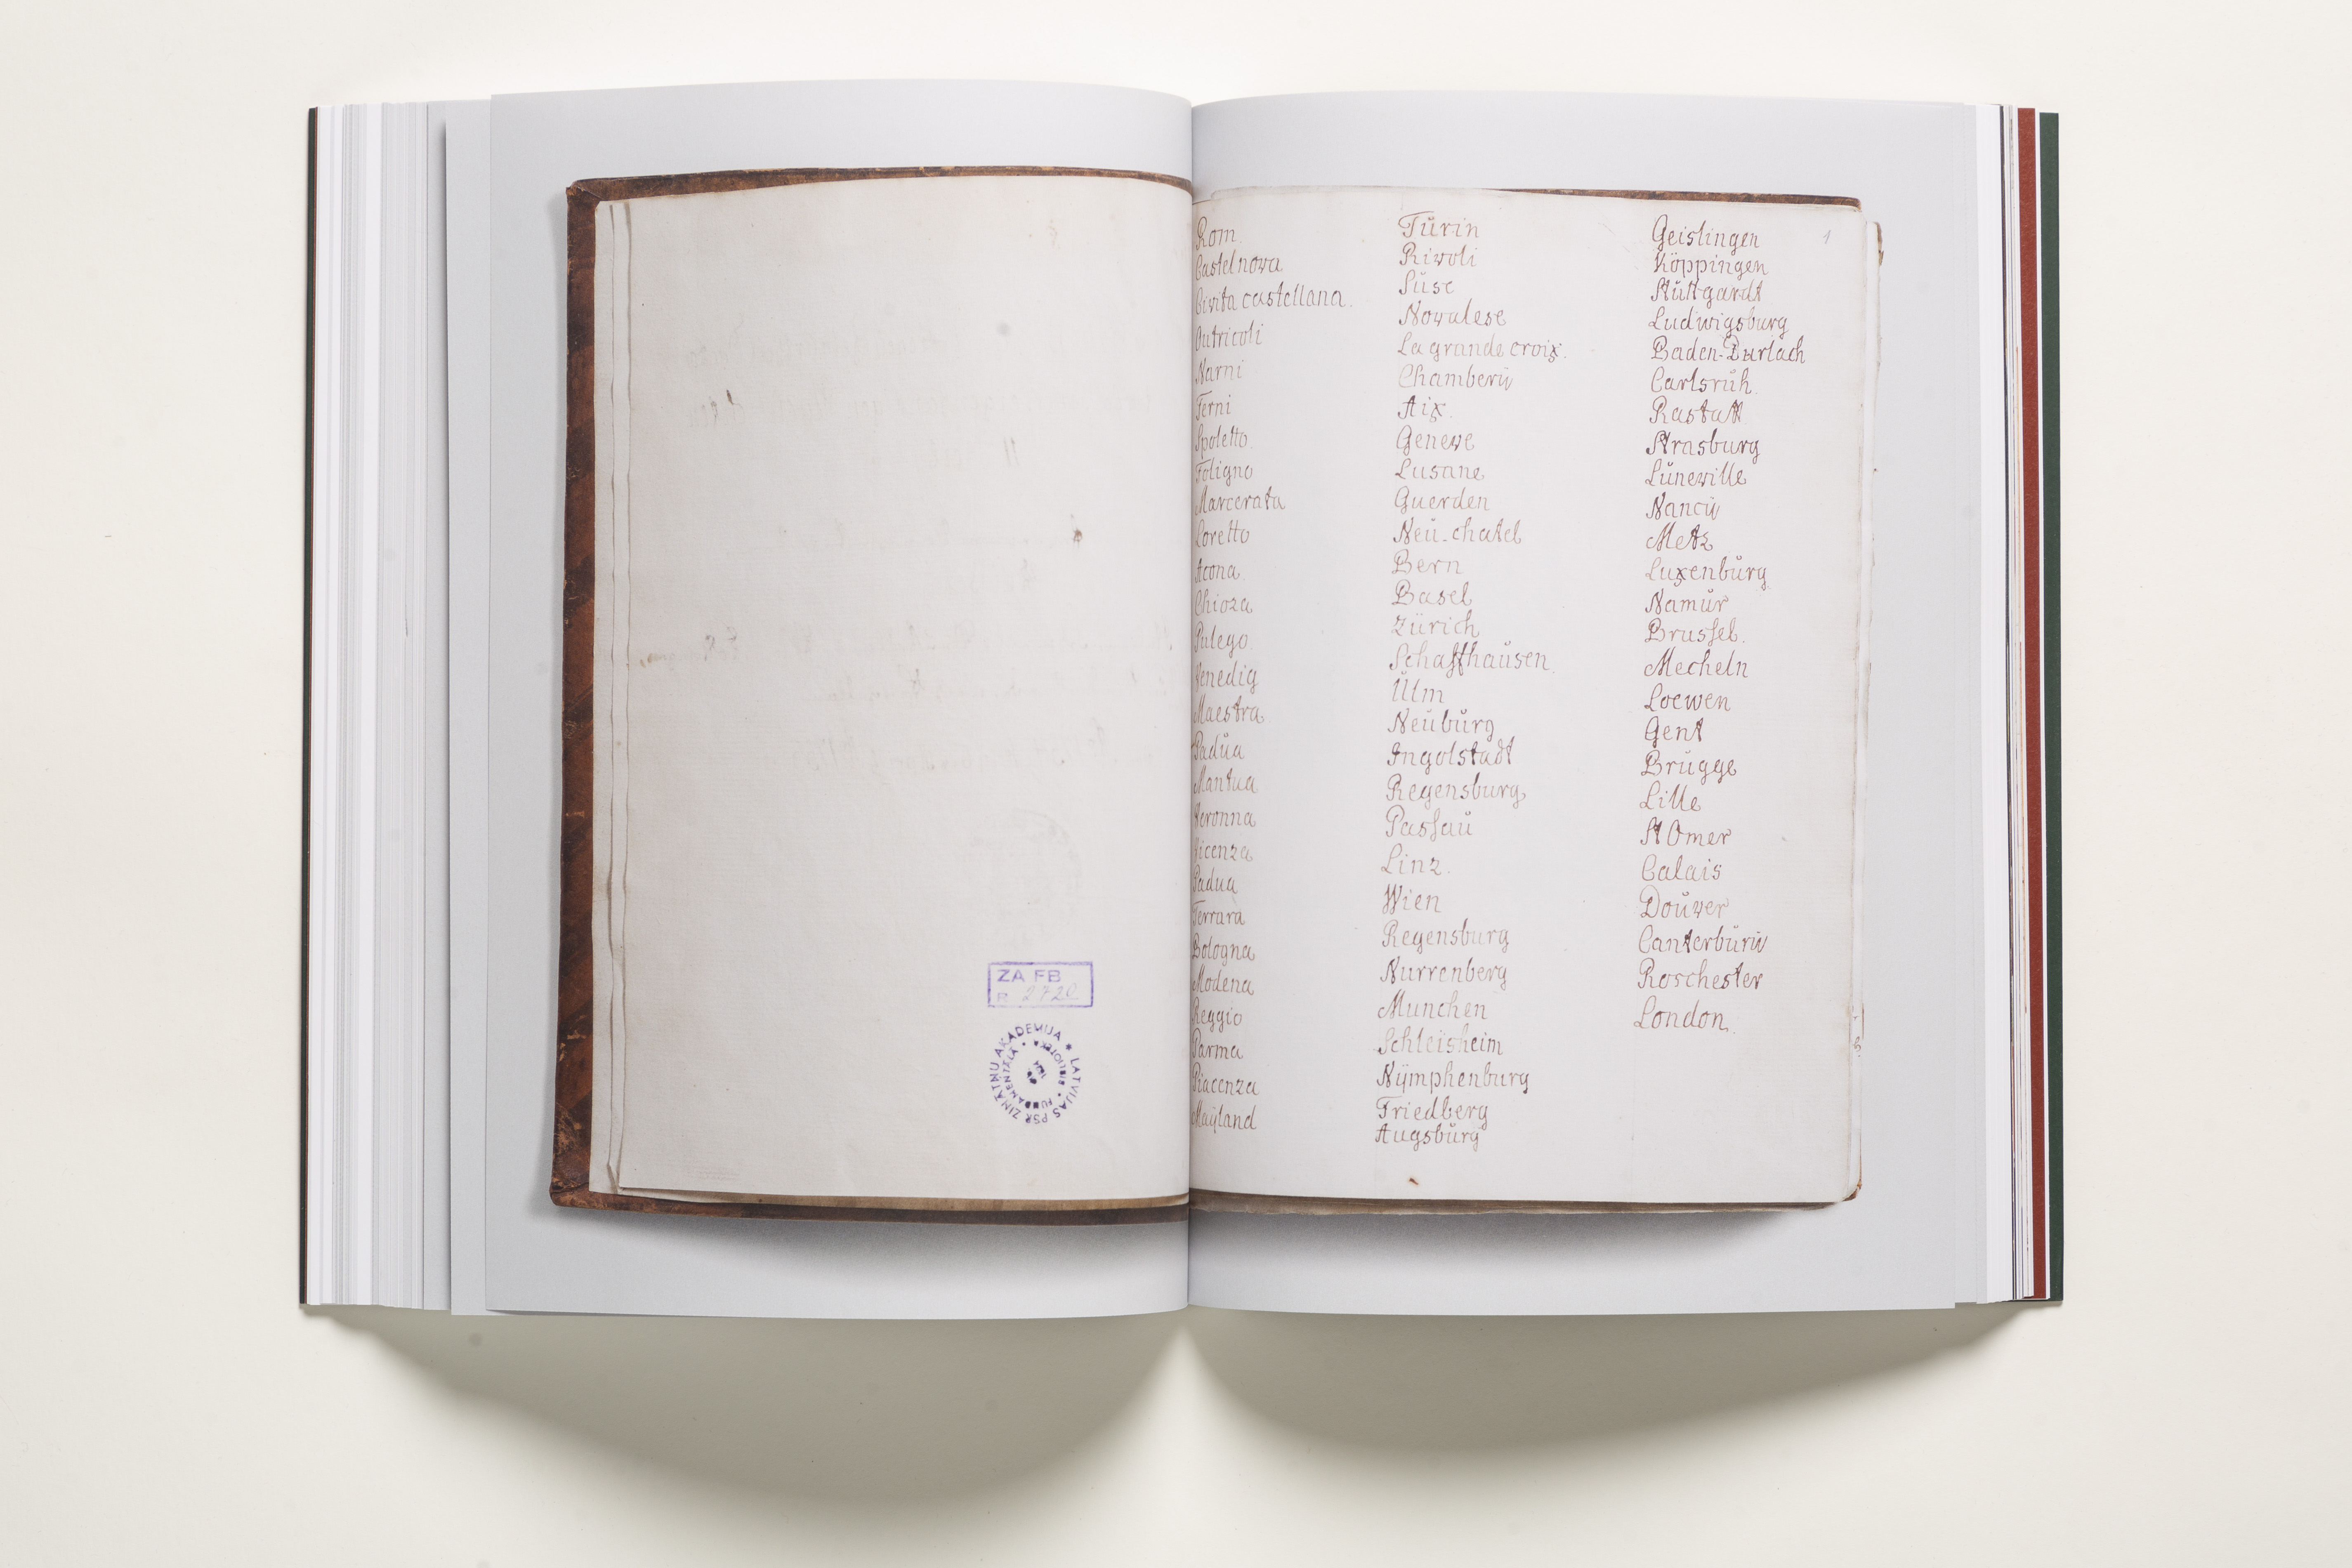 ZA FB
R 2720
ZINĀTŅU AKADEMIJA * LATVIJAS PSR
FUNDAMENTĀLĀ BIBLIOTEKA
1
Rom.
Castelnova
Civita castellana.
Outricoli
Narni
Terni
Spoletto
Foligno
Marcerata
Loretto
Acona
Chioza
Pulego
Venedig
Maestra
Padŭa
Mantua
Veronna
Vicenza
Padua
Ferrara
Bologna
Modena
Reggio
Parma
Piacenza
Maÿland
Tŭrin
Rivoli
Sŭse
Novalese
La grande croix.
Chamberÿ
Aix.
Geneve
Lusane
Guerden
Neŭ-chatel
Bern
Basel
Zürich
Schaffhaŭsen
Ŭlm
Neŭbŭrg
Ingolstadt
Regensburg
Passaŭ
Linz.
Wien
Regensburg
Nurrenberg
Munchen
Schleisheim
Nÿmphenburg
Friedberg
Augsbŭrg
Geislingen
Köppingen
Stŭttgardt
Ludwigsburg
Baden-Durlach
Carlsrŭh.
Rastatt
Strasburg
Lŭneville
Nancÿ
Metz
Luxenbŭrg
Namŭr
Brussel.
Mecheln
Loewen
Gent
Brŭgge
Lille
St Omer
Calais
Doŭver
Canterbŭrÿ
Roschester
London.